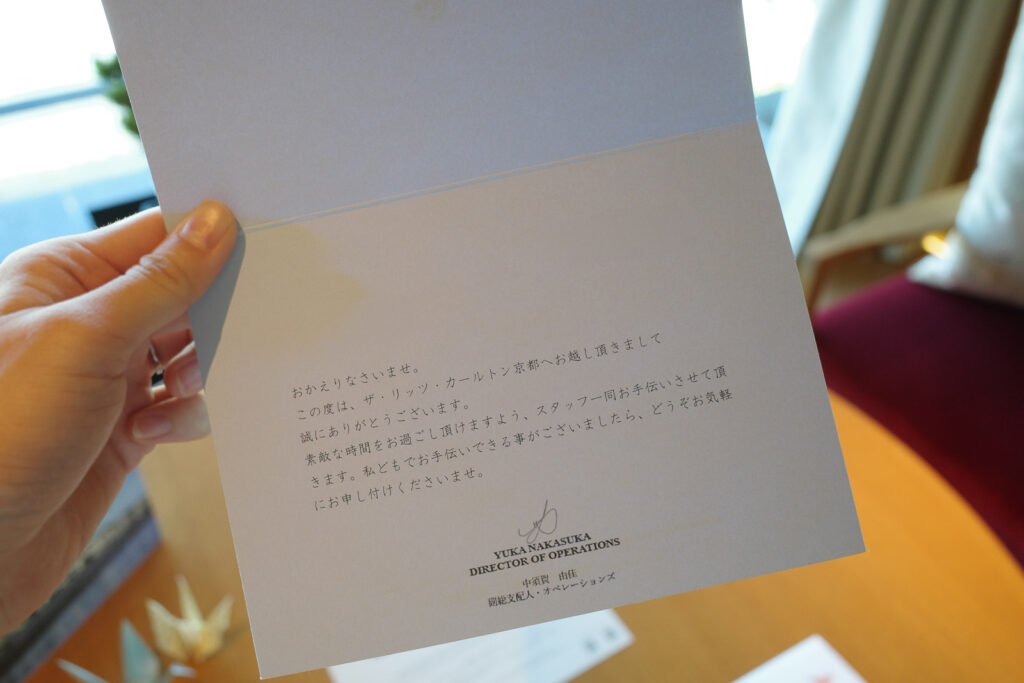 おかえりなさいませ。
この度は、ザ・リッツ・カールトン京都へお越し頂きまして
誠にありがとうございます。
素敵な時間をお過ごし頂けますよう、スタッフ一同お手伝いさせて頂
きます。私どもでお手伝いできる事がございましたら、どうぞお気軽
にお申し付けくださいませ。
YUKA NAKASUKA
DIRECTOR OF OPERATIONS
中須賀 由佳
副総支配人・オペレーションズ